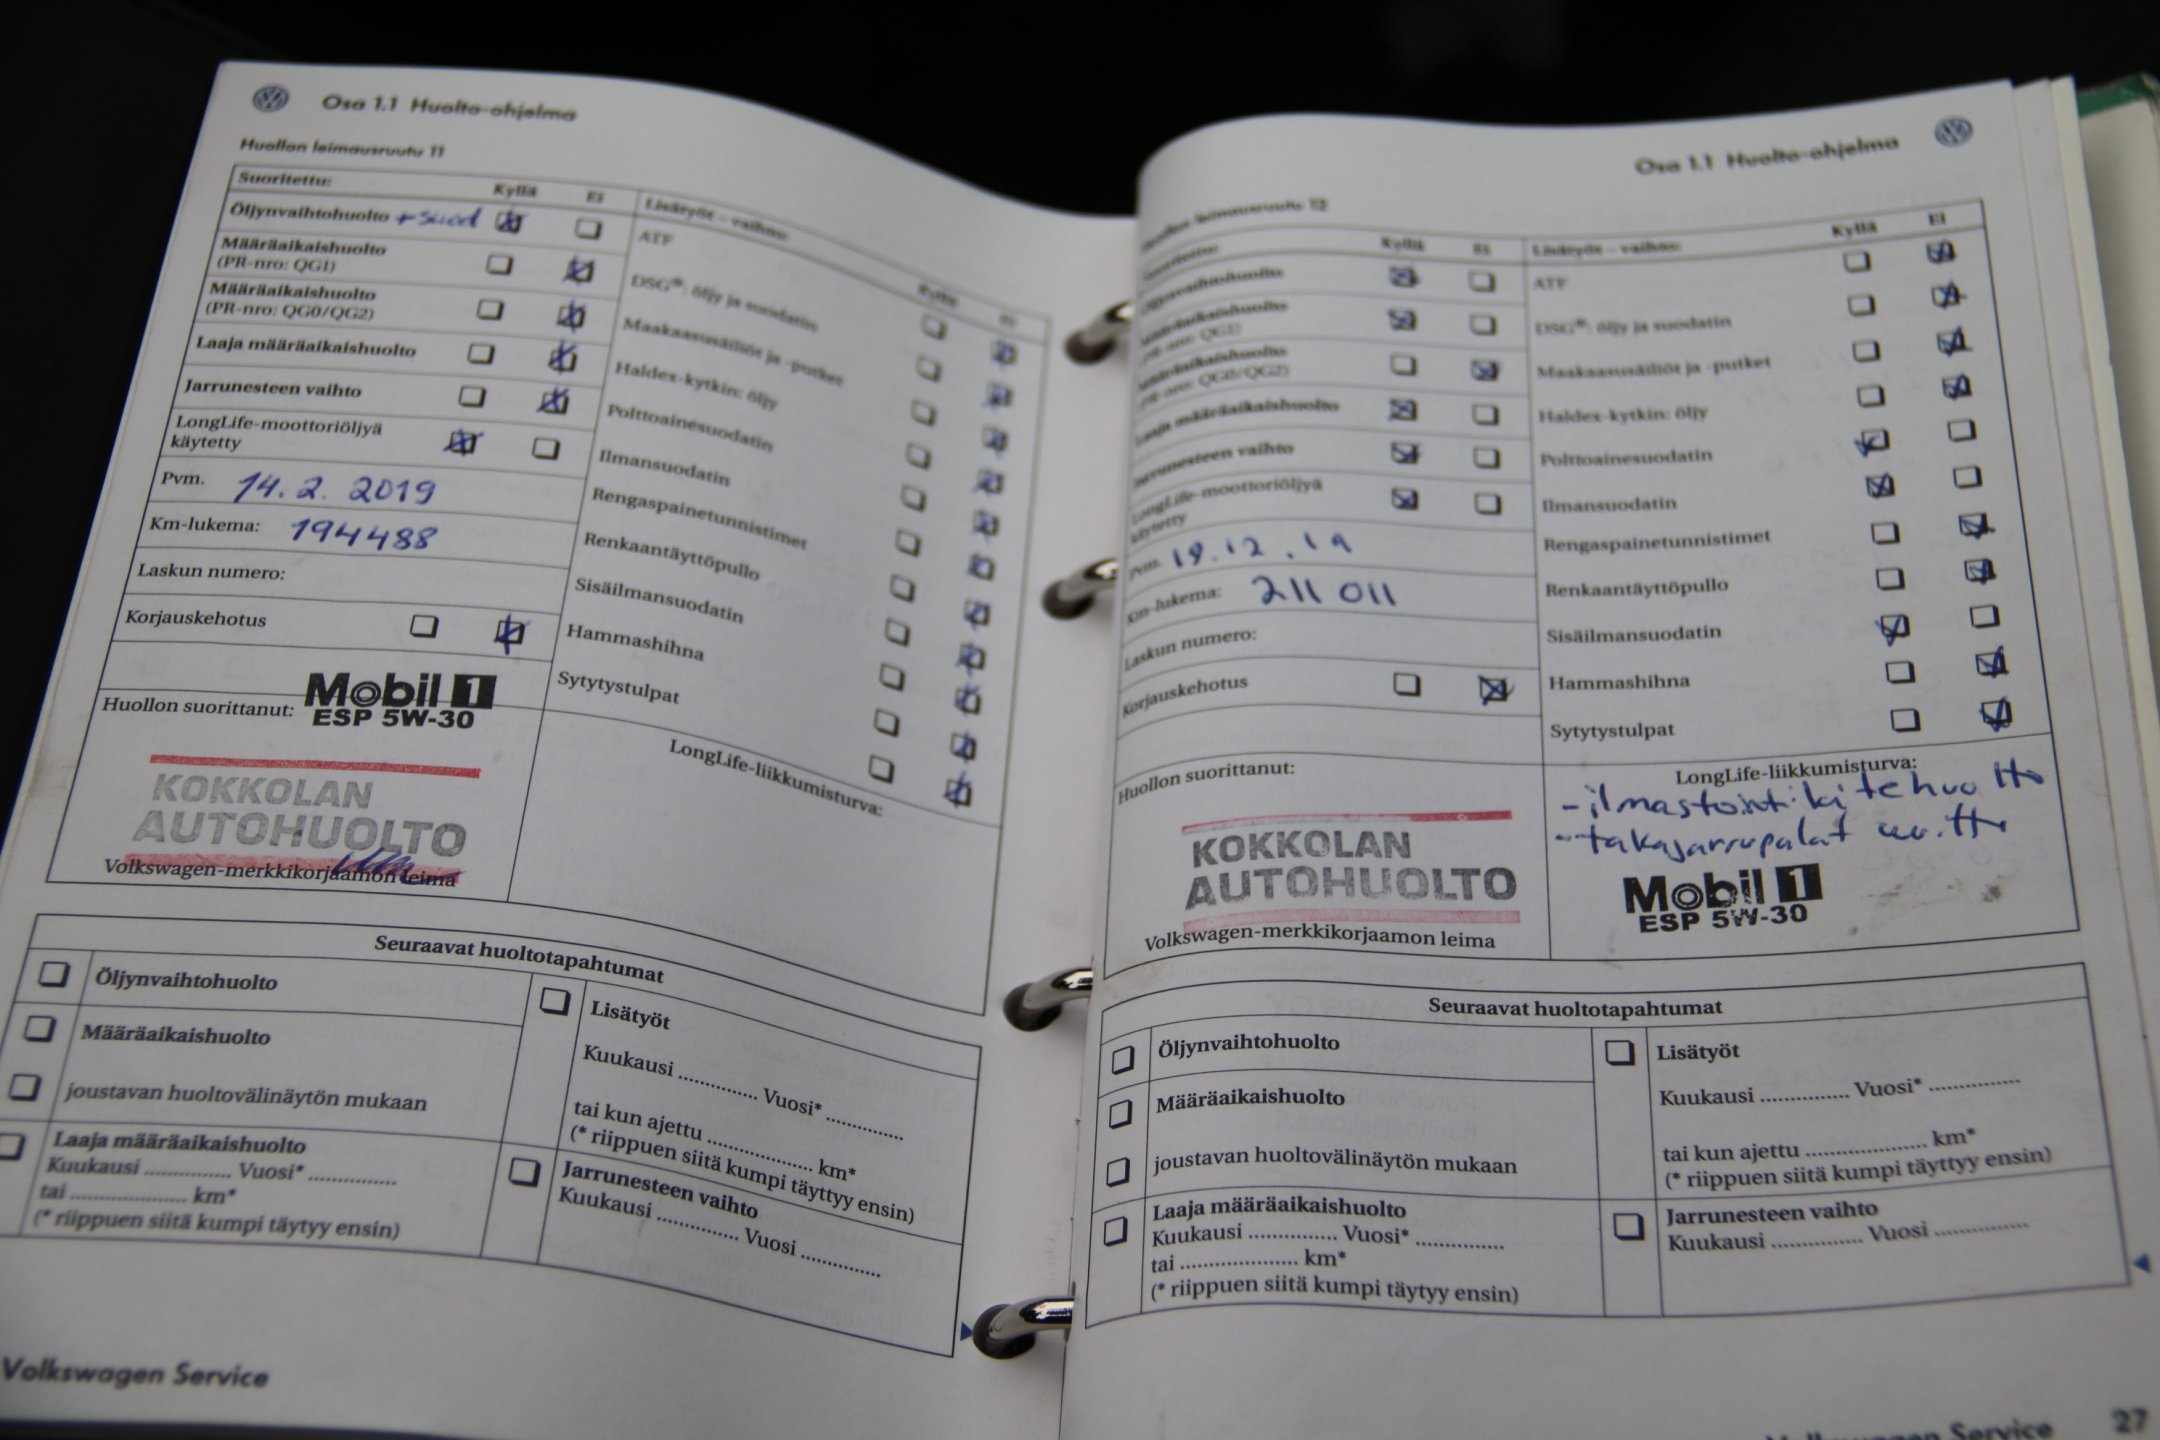 Osa 1.1 Huolto-ohjelma
Huollon leimausruutu 11
Suoritettu: Kyllä Ei
Öljynvaihtohuolto + suod
Määräaikaishuolto
(PR-nro: QG1)
Määräaikaishuolto
(PR-nro: QG0/QG2)
Laaja määräaikaishuolto
Jarrunesteen vaihto
LongLife-moottoriöljyä
käytetty
Pvm. 14.2.2019
Km-lukema: 194488
Laskun numero:
Korjauskehotus
Huollon suorittanut:
Mobil 1
ESP 5W-30
KOKKOLAN
AUTOHUOLTO
Volkswagen-merkkikorjaamon leima
Lisätyöt - vaihto: Kyllä Ei
ATF
DSG®: öljy ja suodatin
Maakaasusäiliöt ja -putket
Haldex-kytkin: öljy
Polttoainesuodatin
Ilmansuodatin
Rengaspainetunnistimet
Renkaantäyttöpullo
Sisäilmansuodatin
Hammashihna
Sytytystulpat
LongLife-liikkumisturva:
Seuraavat huoltotapahtumat
Öljynvaihtohuolto
Määräaikaishuolto
joustavan huoltovälinäytön mukaan
Laaja määräaikaishuolto
Kuukausi ............... Vuosi* ...............
tai .................... km*
(* riippuen siitä kumpi täytyy ensin)
Lisätyöt
Kuukausi .............. Vuosi* ..............
tai kun ajettu .................... km*
(* riippuen siitä kumpi täyttyy ensin)
Jarrunesteen vaihto
Kuukausi ............... Vuosi ...............
Volkswagen Service
Osa 1.1 Huolto-ohjelma
Huollon leimausruutu
Suoritettu: Kyllä Ei
Öljynvaihtohuolto
Määräaikaishuolto
(PR-nro: QG1)
Määräaikaishuolto
(PR-nro: QG0/QG2)
Laaja määräaikaishuolto
Jarrunesteen vaihto
LongLife-moottoriöljyä
käytetty
Pvm. 19.12.19
Km-lukema: 211 011
Laskun numero:
Korjauskehotus
Huollon suorittanut:
KOKKOLAN
AUTOHUOLTO
Volkswagen-merkkikorjaamon leima
Lisätyöt - vaihto: Kyllä Ei
ATF
DSG®: öljy ja suodatin
Maakaasusäiliöt ja -putket
Haldex-kytkin: öljy
Polttoainesuodatin
Ilmansuodatin
Rengaspainetunnistimet
Renkaantäyttöpullo
Sisäilmansuodatin
Hammashihna
Sytytystulpat
LongLife-liikkumisturva:
- ilmastointikitehuolto
- takajarrupalat
Mobil 1
ESP 5W-30
Seuraavat huoltotapahtumat
Öljynvaihtohuolto
Määräaikaishuolto
joustavan huoltovälinäytön mukaan
Laaja määräaikaishuolto
Kuukausi ............... Vuosi* ...............
tai .................... km*
(* riippuen siitä kumpi täytyy ensin)
Lisätyöt
Kuukausi ............... Vuosi* ...............
tai kun ajettu .................... km*
(* riippuen siitä kumpi täyttyy ensin)
Jarrunesteen vaihto
Kuukausi ............... Vuosi ...............
Volkswagen Service 27